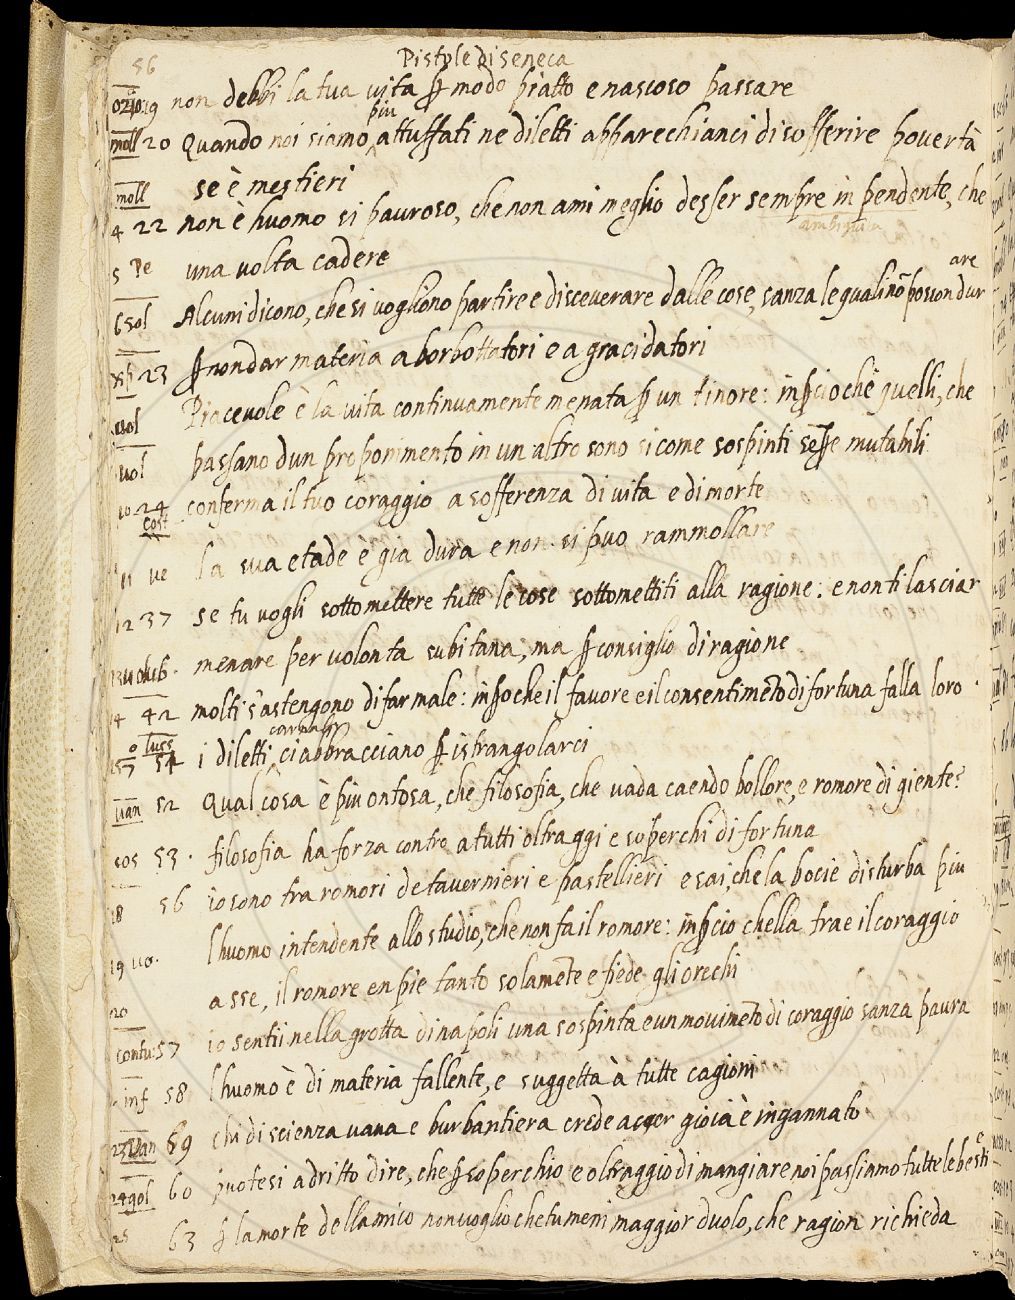 56
Pistole di seneca
19 non debbi la tua vita ꝑ modo piatto e nascoso passare
più
moll 20 Quando noi siamo attuffati ne diletti apparechianci di sofferire povertà
moll se è mestieri
4 22 non è huomo si pauroso, che non ami meglio desser sempre in pendente, che
5 Pe una volta cadere
are
6 sol Alcuni dicono, che si vogliono partire e disceverare dalle cose, sanza le quali nõ posson dur
23 ꝑ non dar materia a borbottatori e a gracidatori
vol Piacevole è la vita continuamente menata ꝑ un tinore: inꝑcioche quelli, che
vol passano dun proponimento in un altro sono si come sospinti mutabili
10 24 conferma il tuo coraggio a sofferenza di vita e di morte
cost
11 ve la sua etade è gia dura e non si puo rammollare
12 37 se tu vogli sottomettere tutte le cose sottomettiti alla ragione: e non ti lasciar
menare per volonta subitana, ma ꝑ consiglio di ragione
14 42 molti s'astengono di far male: inꝑo che il favore e il consentimẽto di fortuna falla loro
carnaly
lucs
54 i diletti ci abbracciano ꝑ istrangolarci
van 52 Qual cosa è piu ontosa, che filosofia, che vada caendo bollore, e romore di giente?
cos 53. filosofia ha forza contro a tutti oltraggi e soperchi di fortuna
18 56 io sono tra romori de tavernieri e pastellieri e sai, che la bocie disturba piu
19 uo. l huomo intendente allo studio, che non fa il romore: inꝑcio chella trae il coraggio
20 a sse, il romore en pie tanto solamẽte e fiede gli orechi
contu: 57 io sentii nella grotta di napoli una sospinta e un movimẽto di coraggio sanza paura
inf 58 l huomo è di materia fallente, e suggetta à tutte cagioni
23 van 59 chi di scienza vana e burbantiera crede aver gioia è ingannato
24 gol 60 puotesi a dritto dire, che ꝑ soperchio e oltraggio di mangiare noi passiamo tutte le besti
e
25 63 ꝑ la morte dell amico non voglio che tu meni maggior duolo, che ragion richieda